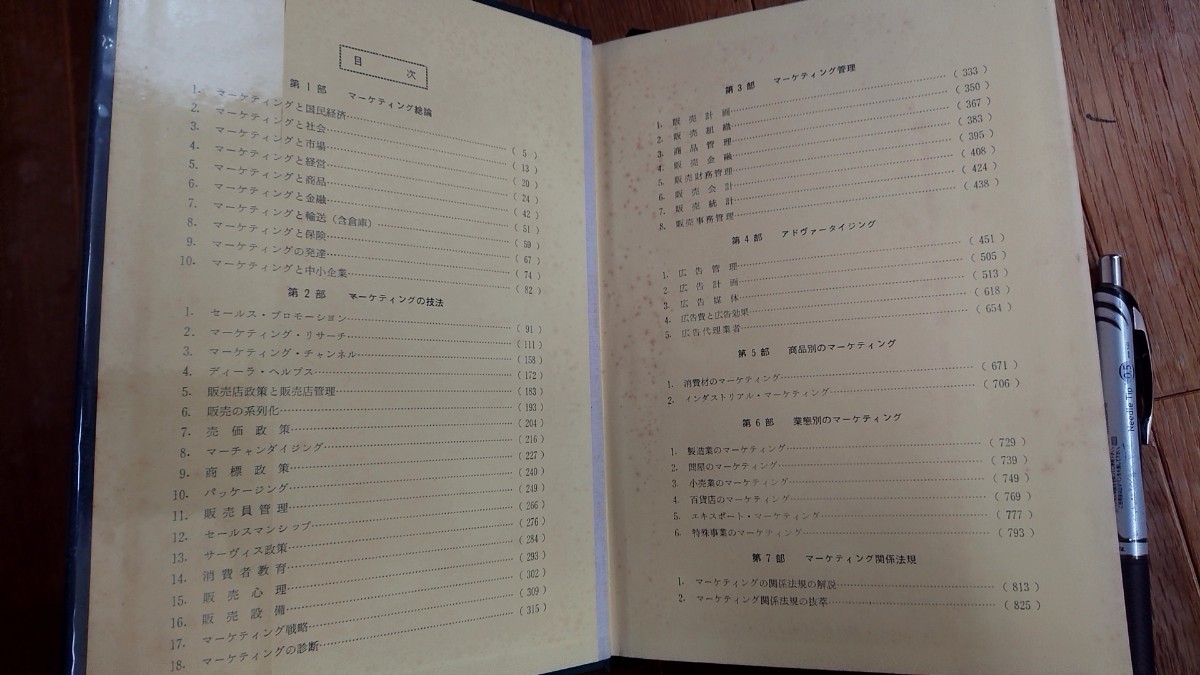 目 次
第1部 マーケティング総論
1. マーケティングと国民経済……( 5 )
2. マーケティングと社会……( 13 )
3. マーケティングと市場……( 20 )
4. マーケティングと経営……( 24 )
5. マーケティングと商品……( 42 )
6. マーケティングと金融……( 51 )
7. マーケティングと輸送(含倉庫)……( 59 )
8. マーケティングと保険……( 67 )
9. マーケティングの発達……( 74 )
10. マーケティングと中小企業……( 82 )
第2部 マーケティングの技法
1. セールス・プロモーション……( 91 )
2. マーケティング・リサーチ……( 111 )
3. マーケティング・チャンネル……( 158 )
4. ディーラ・ヘルプス……( 172 )
5. 販売店政策と販売店管理……( 183 )
6. 販売の系列化……( 193 )
7. 売価政策……( 204 )
8. マーチャンダイジング……( 216 )
9. 商標政策……( 227 )
10. パッケージング……( 240 )
11. 販売員管理……( 249 )
12. セールスマンシップ……( 266 )
13. サーヴィス政策……( 276 )
14. 消費者教育……( 284 )
15. 販売心理……( 293 )
16. 販売設備……( 302 )
17. マーケティング戦略……( 309 )
18. マーケティングの診断……( 315 )
第3部 マーケティング管理
1. 販売計画……( 333 )
2. 販売組織……( 350 )
3. 商品管理……( 367 )
4. 販売金融……( 383 )
5. 販売財務管理……( 395 )
6. 販売会計……( 408 )
7. 販売統計……( 424 )
8. 販売事務管理……( 438 )
第4部 アドヴァータイジング
1. 広告管理……( 451 )
2. 広告計画……( 505 )
3. 広告媒体……( 513 )
4. 広告費と広告効果……( 618 )
5. 広告代理業者……( 654 )
第5部 商品別のマーケティング
1. 消費材のマーケティング……( 671 )
2. インダストリアル・マーケティング……( 706 )
第6部 業態別のマーケティング
1. 製造業のマーケティング……( 729 )
2. 問屋のマーケティング……( 739 )
3. 小売業のマーケティング……( 749 )
4. 百貨店のマーケティング……( 769 )
5. エキスポート・マーケティング……( 777 )
6. 特殊事業のマーケティング……( 793 )
第7部 マーケティング関係法規
1. マーケティングの関係法規の解説……( 813 )
2. マーケティング関係法規の抜萃……( 825 )
Needle Tip 0.5